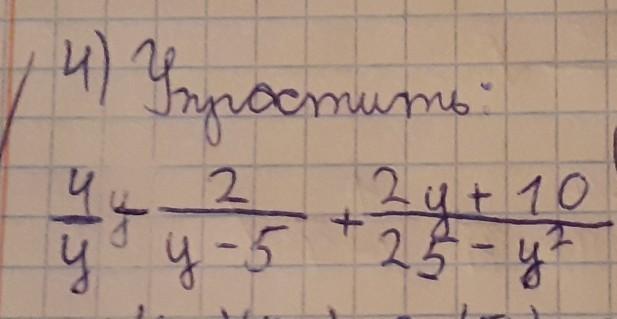 4) Упростить:
4/y - 2/(y - 5) + (2y + 10)/(25 - y²)